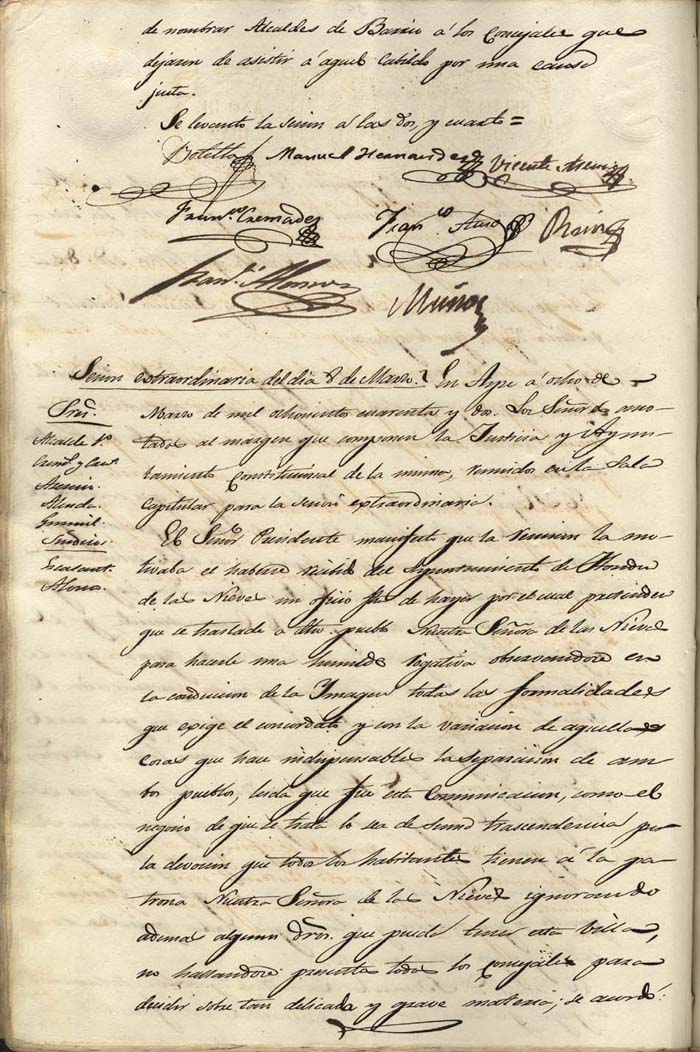 de nombrar Alcaldes de Barrio á los Concejales que
dejaron de asistir á aquel Cabildo por una causa
justa.
Se levantó la sesion á las dos, y cuarto =
Botella Manuel Hernandez Vicente
Fran.co Cremades Fran.co
Fran.co Alonso Muños
Sesion extraordinaria del dia 8 de Marzo. En Aspe á ocho de
Sres.
Marzo de mil ochocientos cuarenta y dos. Los Señores ano-
Alcalde 1º
tados al margen que componen la Justicia y Ayun-
tamiento Constitucional de la misma, reunidos en la Sala
Capitular para la sesion extraordinaria.
Sindicos
Alonso
El Señor Presidente manifestó que la reunion la mo-
tivaba el haberse recibido del Ayuntamiento de Hondon
de las Nieves un oficio fha de hayer por el cual pretenden
que se traslade a dho pueblo Nuestra Señora de las Nieves
para hacerle una humilde rogativa observandose en
la conducion de la Imagen todas las formalidades
que exige el concordato y con la variacion de aquellas
cosas que hace indispensables la separacion de am-
bos pueblos, leida que fue esta Comunicacion, como el
negocio de que se trata lo sea de suma trascendencia por
la devocion que todos los habitantes tienen á la pa-
trona Nuestra Señora de las Nieves ignorando
ademas algunos dros. que puede tener esta Villa,
no hallandose presentes todos los Concejales para
decidir sobre tan delicada y grave materia; se acordó: